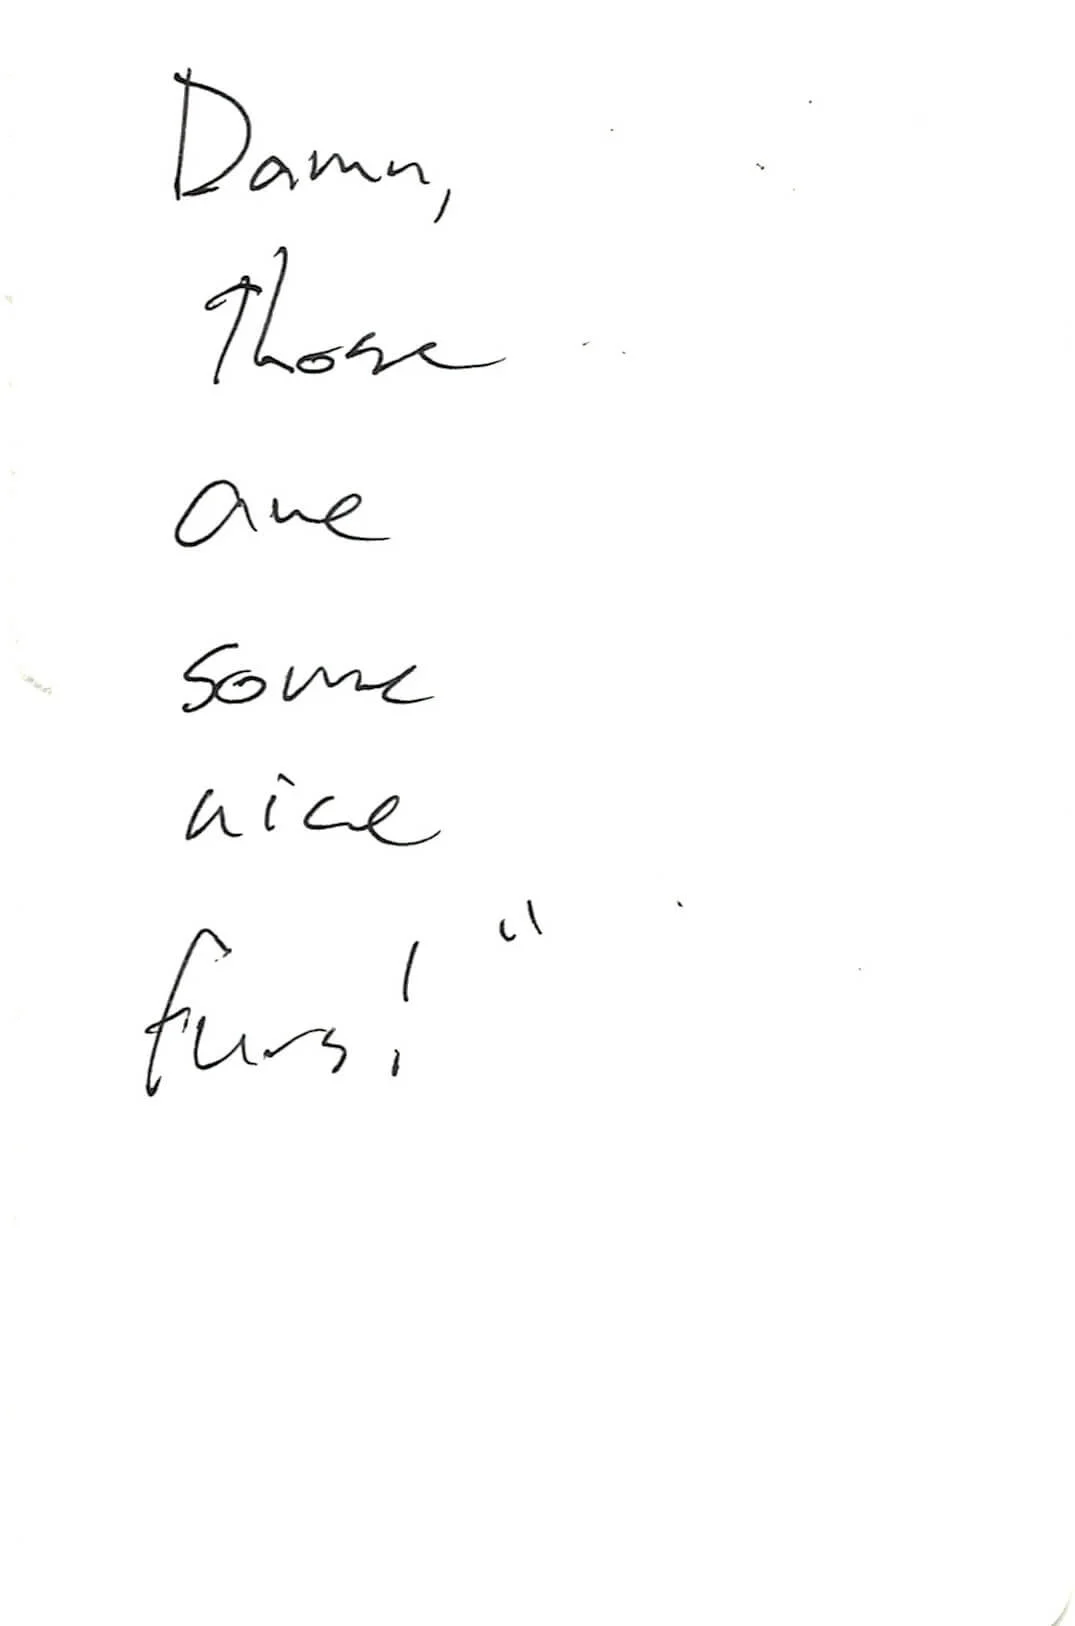 Damn,
those
are
some
nice
furs!"